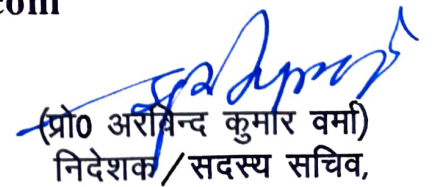 com
(प्रो0 अरविन्द कुमार वर्मा)
निदेशक/सदस्य सचिव,